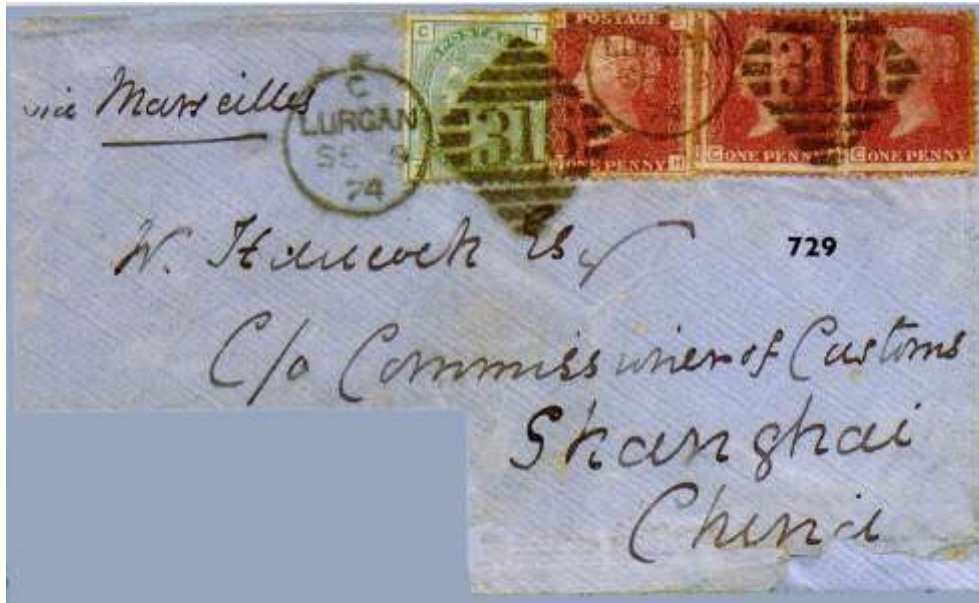 via Marseilles
C
LURGAN
SE 8
74
C T
316
POSTAGE
ONE PENNY H
LURGAN
C ONE PENNY
316
C ONE PENNY
W. Hancock Esq
729
C/o Commissioner of Customs
Shanghai
China